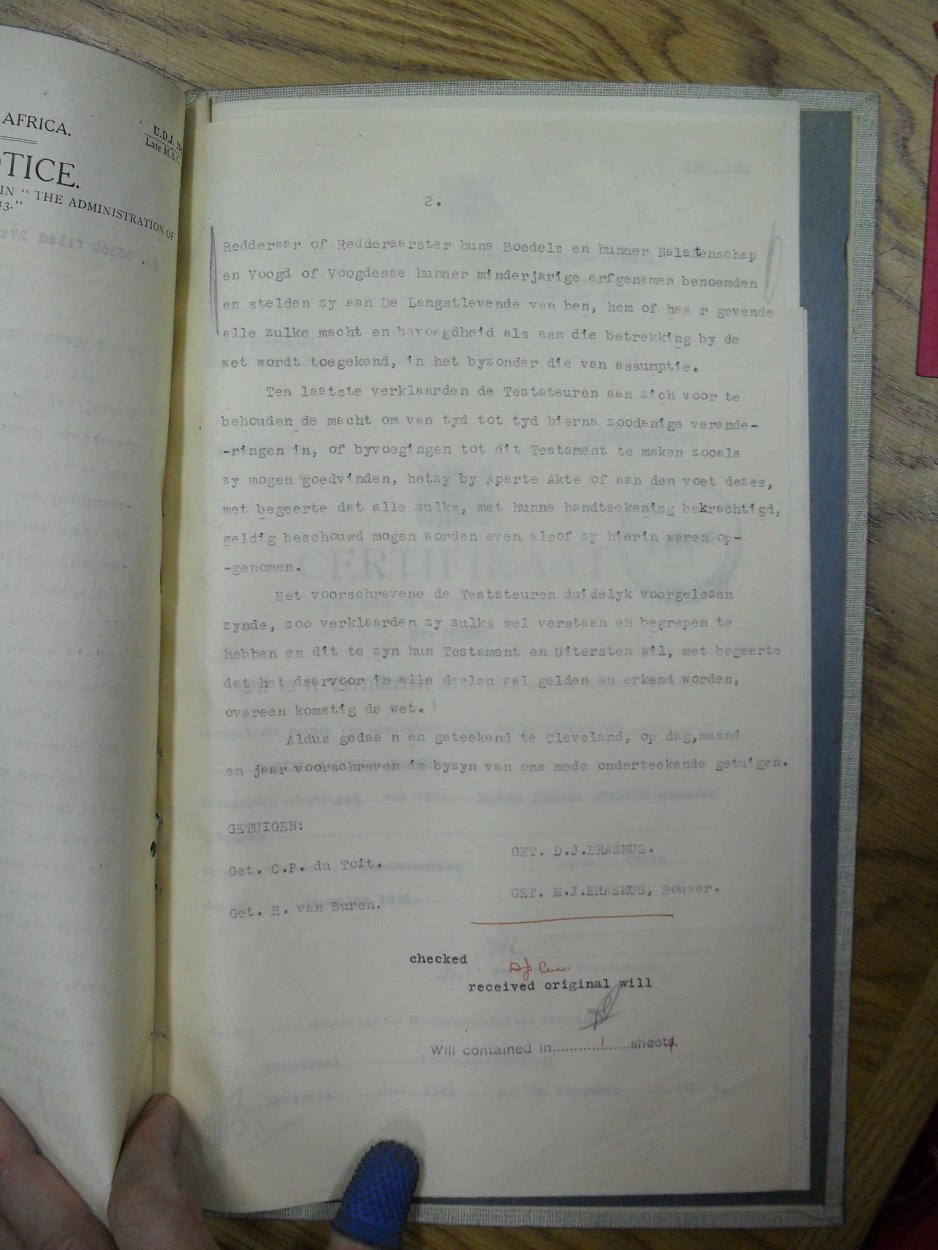 AFRICA.
U.D.J.
Late M.S.C.
OTICE.
IN "THE ADMINISTRATION OF
13."
2.
Redderaar of Redderaarster huns Boedels en hunner Nalatenschap
en Voogd of Voogdesse hunner minderjarige erfgenamen benoemden
en stelden zy aan De Langstlevende van hen, hem of haa r gevende
alle zulke macht en bevoegdheid als aan die betrekking by de
wet wordt toegekend, in het byzonder die van assumptie.
Ten laatste verklaarden de Testateuren aan zich voor te
behouden de macht om van tyd tot tyd hierna zoodanige verande-
-ringen in, of byvoegingen tot dit Testament te maken zooals
zy mogen goedvinden, hetzy by Aparte Akte of aan den voet dezes,
met begeerte dat alle zulke, met hunne handteekening bekrachtigd,
geldig beschouwd mogen worden even alsof zy hierin waren op-
-genomen.
Het voorschrevene de Testateuren duidelyk voorgelezen
zynde, zoo verklaarden zy zulks wel verstaan en begrepen te
hebben en dit te zyn hun Testament en Uitersten Wil, met begeerte
dat het daarvoor in alle deelen zal gelden en erkend worden,
overeen komstig de wet.
Aldus gedaa n en geteekend te Cleveland, op dag,maand
en jaar voorschreven in byzyn van ons mede onderteekende getuigen.
GETUIGEN:
GET. D.J.ERASMUS.
Get. C.P. du Toit.
GET. M.J.ERASMUS, Bouwer.
Get. H. van Buren.
checked
received original will
Will contained in............1......sheets